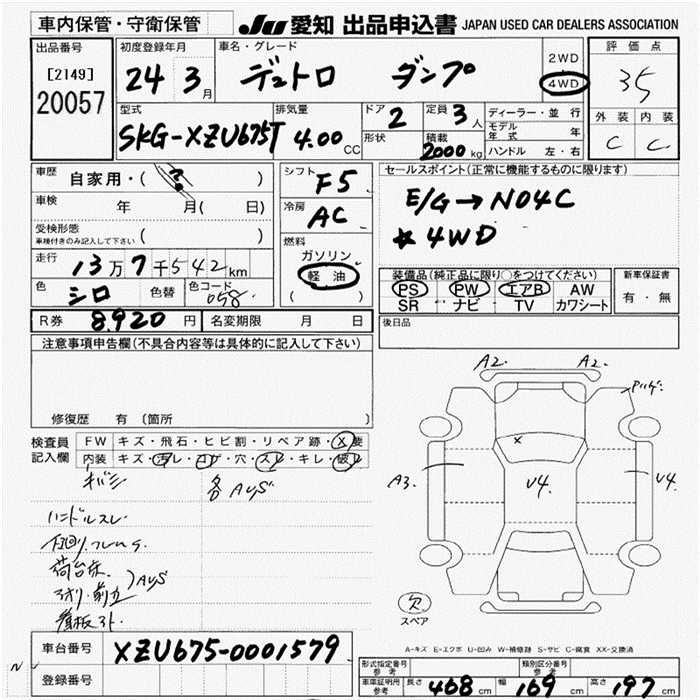 車内保管・守衛保管
JU 愛知 出品申込書 JAPAN USED CAR DEALERS ASSOCIATION
出品番号
[2149]
20057
初度登録年月
24 3月
車名・グレード
デュトロ ダンプ
2WD
4WD
評価点
35
外装 内装
C C
型式
SKG-XZU675T
排気量
4.00 CC
ドア
2
形状
定員
3人
積載
2000 kg
ディーラー・並行
モデル年式 年
ハンドル 左・右
車歴 自家用・( ? )
車検 年 月( 日)
受検形態
車検付きのみ記入して下さい ( )
走行
13万7千542km
色
シロ
色替
色コード
058
シフト
F5
冷房
AC
燃料
ガソリン
軽油
( )
セールスポイント(正常に機能するものに限ります)
E/G→N04C
* 4WD
装備品(純正品に限り○をつけてください)
PS PW エアB AW
SR ナビ TV カワシート
新車保証書
有・無
R券 8,920円
名変期限 月 日
後日品
注意事項申告欄(不具合内容等は具体的に記入して下さい)
修復歴 有 〔箇所 〕
検査員記入欄
FW キズ・飛石・ヒビ割・リペア跡・X要
内装 キズ・汚レ・コゲ・穴・スレ・キレ・破レ
キバミ
各AUS
ハンドルスレ
下回リ
荷台床
アオリ・前立
AUS
看板ヌト.
A2. A2.
A3.
U4.
U4.
欠
スペア
A-キズ E-エクボ U-凹み W-補修跡 S-サビ C-腐食 XX-交換済
N
車台番号
XZU675-0001579
登録番号
形式指定番号
参考
類別区分番号
参考
車庫証明用
参考
長さ 468 cm 幅 169 cm 高さ 197 cm